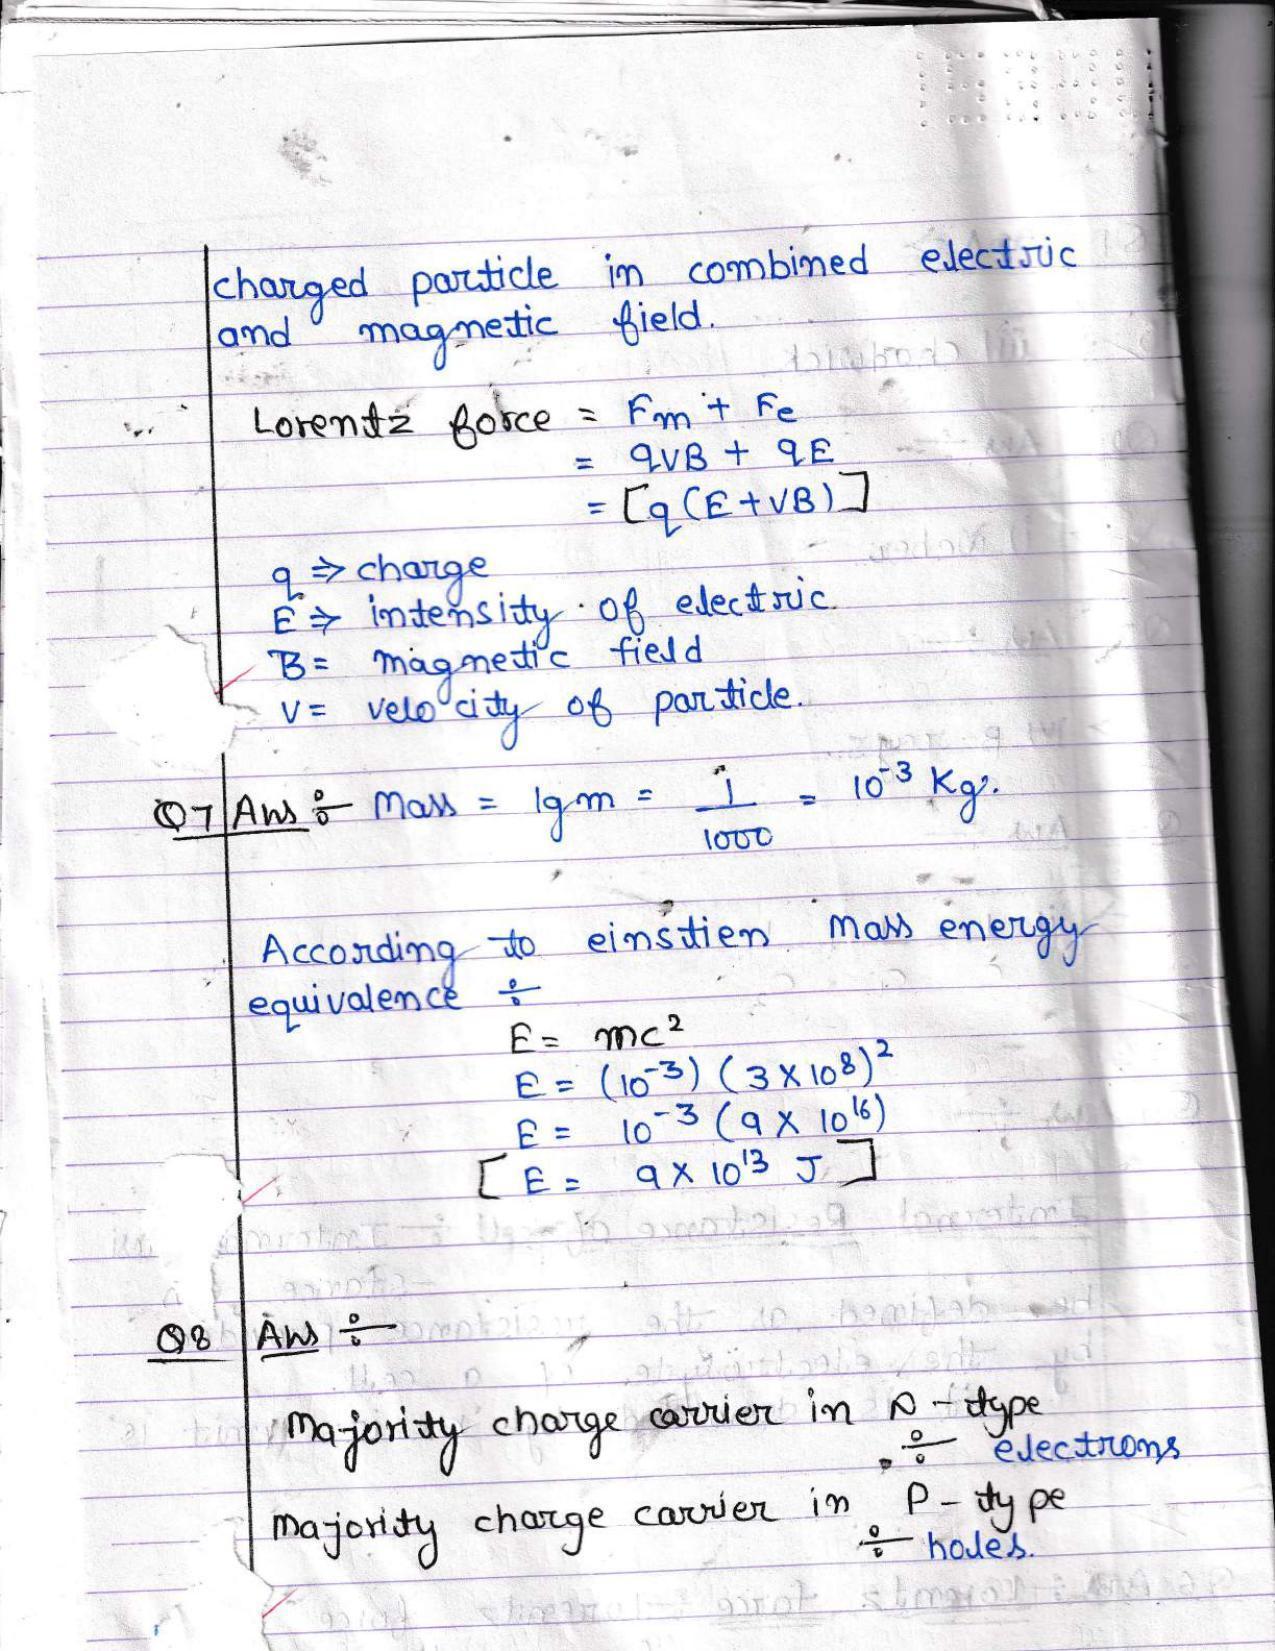 charged particle in combined electric
and magnetic field.
Lorentz force = Fm + Fe
= qVB + qE
= [q(E+VB)]
q ⇒ charge
E ⇒ intensity of electric.
B = magnetic field
V = velocity of particle.
Q7 Ans ÷ Mass = 1gm = 1/1000 = 10⁻³ Kg.
According to einstien mass energy
equivalence ÷
E = mc²
E = (10⁻³) (3 × 10⁸)²
E = 10⁻³ (9 × 10¹⁶)
[E = 9 × 10¹³ J]
Q8 Ans ÷
Majority charge carrier in N-type
÷ electrons
Majority charge carrier in P-type
÷ holes.